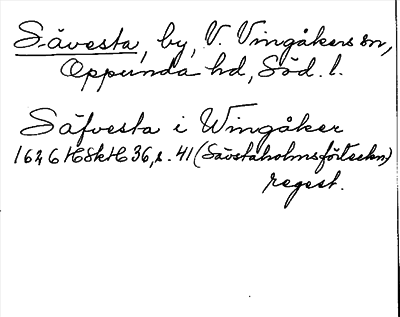 Sävesta, by, V. Vingåkers sn,
Oppunda hd, Söd. l.
Säfvesta i Wingåker
1626 HSkH 36, s. 41 (Sävstaholmsförteckn)
regest.